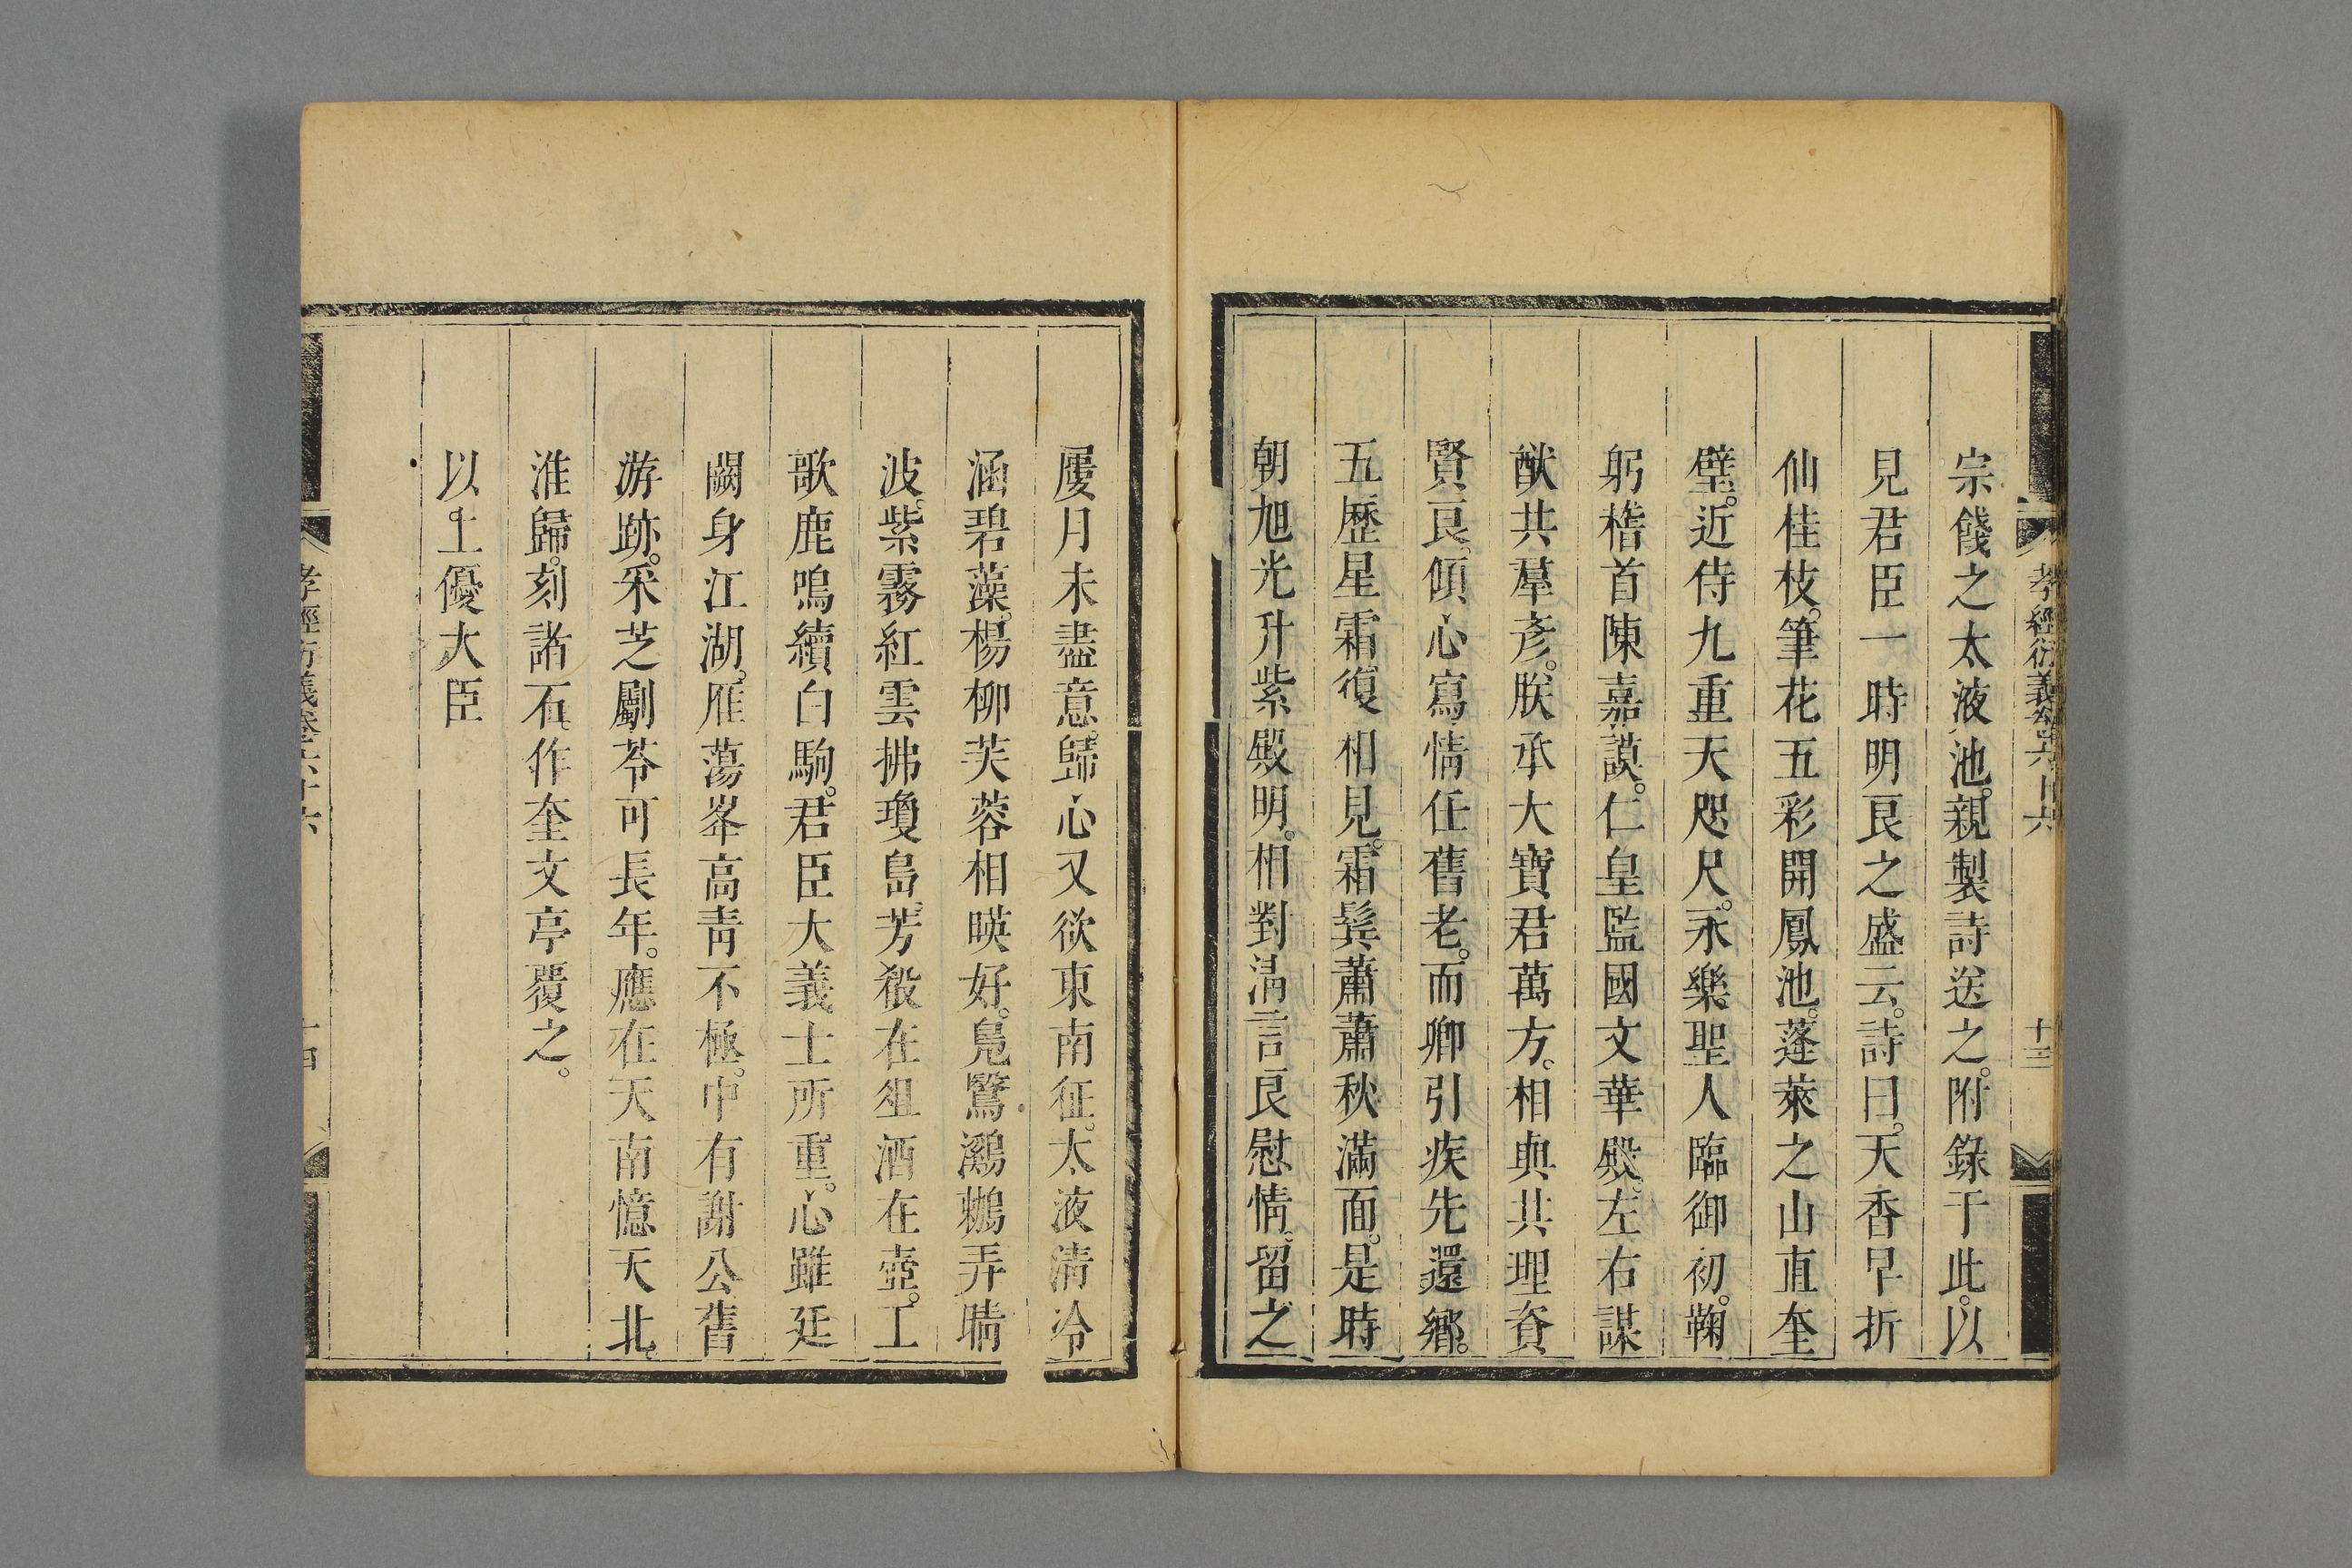 孝經衍義卷六十六
十三
宗餞之太液池。親製詩送之。附錄于此。以
見君臣一時明良之盛云。詩曰。天香早折
仙桂枝。筆花五彩開鳳池。蓬萊之山直奎
璧。近侍九重天咫尺。永樂聖人臨御初。鞠
躬稽首陳嘉謨。仁皇監國文華殿。左右謀
猷共羣彥。朕承大寶君萬方。相與共理資
賢良。傾心寫情任舊老。而卿引疾先還鄉。
五歷星霜復相見。霜鬂蕭蕭秋滿面。是時
朝旭光升紫殿明。相對淸言良慰情。留之
屢月未盡意。歸心又欲東南征。太液清冷
涵碧藻。楊柳芙蓉相暎好。鳧鷖鸂鶒弄晴
波。紫霧紅雲拂瓊島。芳殽在俎酒在壺。工
歌鹿鳴續白駒。君臣大義士所重。心雖廷
闕身江湖。雁蕩峯高靑不極。中有謝公舊
游跡。采芝劚苓可長年。應在天南憶天北。
淮歸。刻諸石。作奎文亭覆之。
以上優大臣
孝經衍義卷六十六
十四